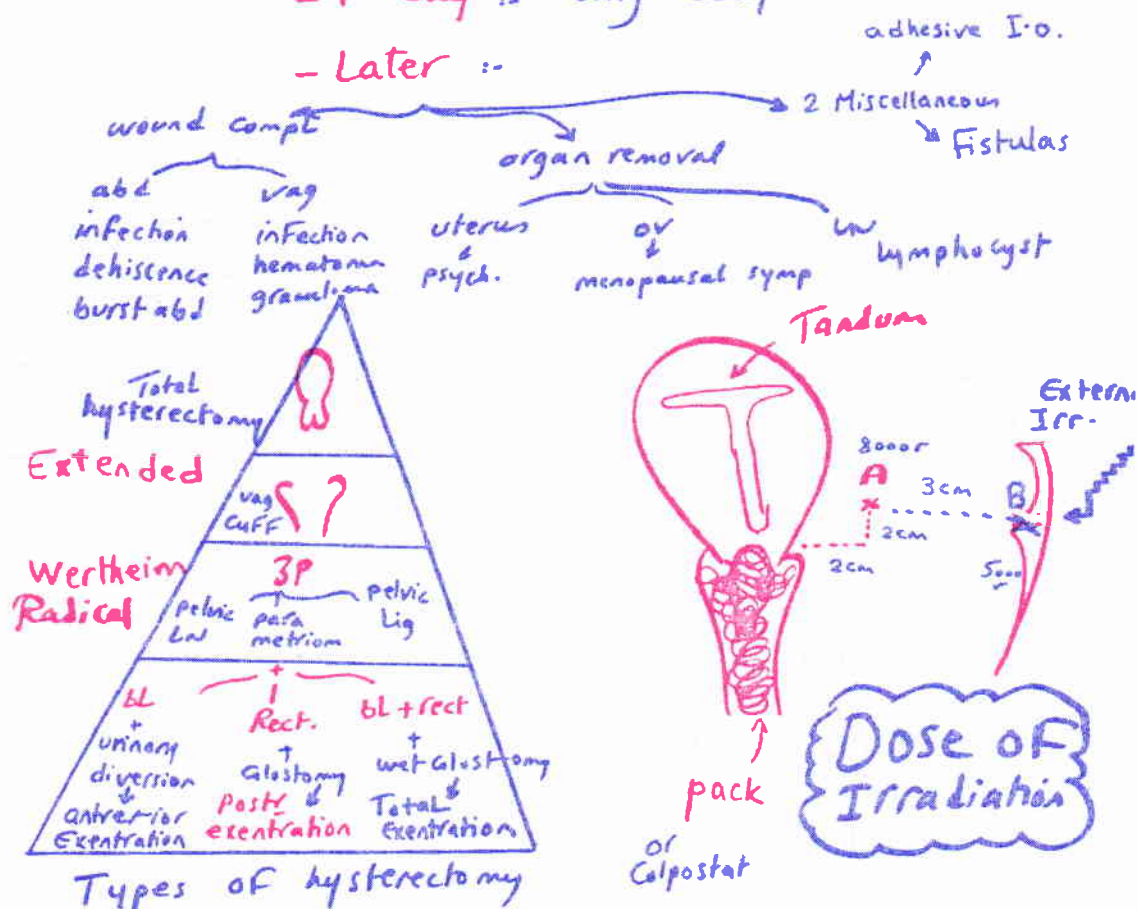 - Later :-
adhesive I.o.
2 Miscellaneous
Fistulas
wound compl
organ removal
abd
infection
dehiscence
burst abd
vag
infection
hematoma
granuloma
uterus
psych.
ov
menopausal symp
LN
lymphocyst
Total
hysterectomy
Extended
vag
cuff
Wertheim
Radical
3P
pelvic
LN
para
metriom
pelvic
Lig
+
bL
+
urinary
diversion
antrerior
Exentration
Rect.
+
Colostomy
Postr
exentration
bL + rect
+
wet Colostomy
Total
Exentration
Types of hysterectomy
Tandum
8000r
A
x
3cm
2cm
2cm
B
x
5000
Extern
Irr.
pack
or
Colpostat
Dose of
Irradiation